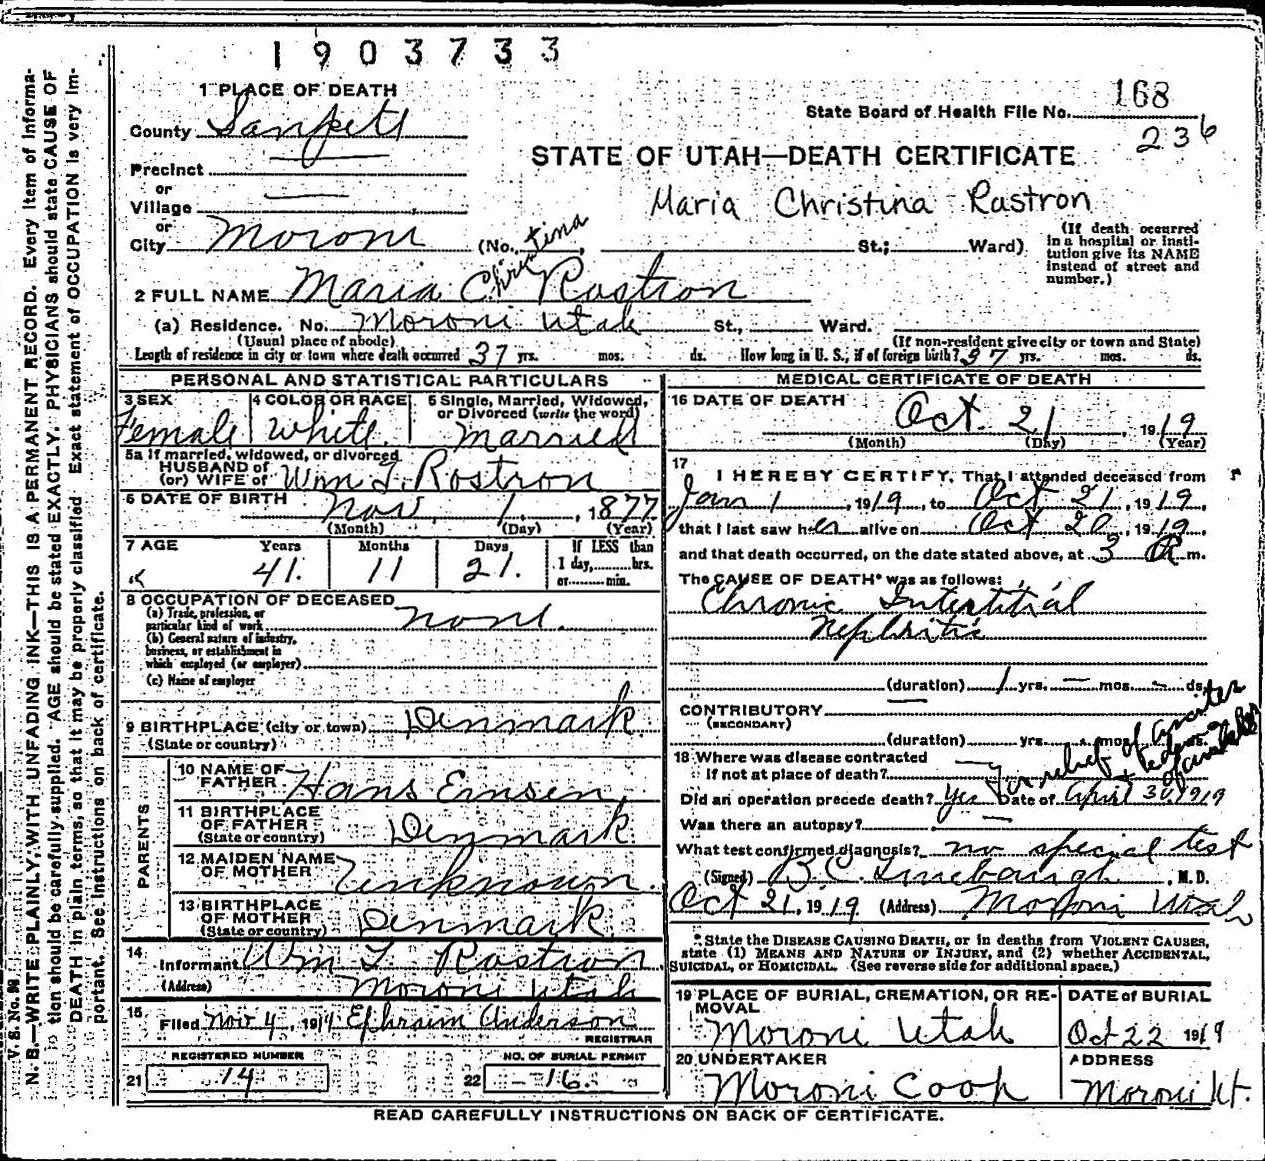 1903733
1 PLACE OF DEATH
County Sanpete
State Board of Health File No. 168
236
STATE OF UTAH—DEATH CERTIFICATE
Precinct
or
Village
Maria Christina Rastron
or
City Moroni (No. St.; Ward)
(If death occurred in a hospital or institution give its NAME instead of street and number.)
2 FULL NAME Maria Christina Rostron
(a) Residence. No. Moroni Utah St., Ward.
(Usual place of abode) (If non-resident give city or town and State)
Length of residence in city or town where death occurred 37 yrs. mos. ds. How long in U. S., if of foreign birth? 37 yrs. mos. ds.
PERSONAL AND STATISTICAL PARTICULARS
3 SEX Female
4 COLOR OR RACE White
5 Single, Married, Widowed, or Divorced (write the word) Married
5a If married, widowed, or divorced
HUSBAND of
(or) WIFE of Wm T. Rostron
6 DATE OF BIRTH Nov 1, 1877
(Month) (Day) (Year)
7 AGE Years Months Days If LESS than
41. 11 21. 1 day, hrs.
or min.
8 OCCUPATION OF DECEASED
(a) Trade, profession, or particular kind of work none.
(b) General nature of industry, business, or establishment in which employed (or employer)
(c) Name of employer
9 BIRTHPLACE (city or town) Denmark
(State or country)
PARENTS
10 NAME OF FATHER Hans
11 BIRTHPLACE OF FATHER Denmark
(State or country)
12 MAIDEN NAME OF MOTHER Unknown.
13 BIRTHPLACE OF MOTHER Denmark
(State or country)
14 Informant Wm T Rostron
(Address) Moroni Utah
15 Filed Nov 4, 191 Ephraim Anderson
REGISTRAR
REGISTERED NUMBER
21 14
NO. OF BURIAL PERMIT
22 16.
MEDICAL CERTIFICATE OF DEATH
16 DATE OF DEATH Oct. 21, 1919
(Month) (Day) (Year)
17 I HEREBY CERTIFY, That I attended deceased from
Jan 1, 1919, to Oct 21, 1919,
that I last saw her alive on Oct 20, 1919,
and that death occurred, on the date stated above, at 3 A m.
The CAUSE OF DEATH* was as follows:
Chronic Interstitial
Nephritis
(duration) 1 yrs. — mos. — ds.
CONTRIBUTORY
(SECONDARY)
(duration) yrs. mos. ds.
18 Where was disease contracted
If not at place of death?
For relief of
Did an operation precede death? Yes Date of April 30, 1919
Was there an autopsy?
What test confirmed diagnosis? no special test
(Signed) B.C. Linebaugh, M. D.
Oct 21, 1919 (Address) Moroni Utah
* State the DISEASE CAUSING DEATH, or in deaths from VIOLENT CAUSES, state (1) MEANS AND NATURE OF INJURY, and (2) whether ACCIDENTAL, SUICIDAL, or HOMICIDAL. (See reverse side for additional space.)
19 PLACE OF BURIAL, CREMATION, OR REMOVAL
Moroni Utah
DATE of BURIAL
Oct 22 1919
20 UNDERTAKER
Moroni Coop
ADDRESS
Moroni Ut.
READ CAREFULLY INSTRUCTIONS ON BACK OF CERTIFICATE.
V. S. No.
N. B.—WRITE PLAINLY, WITH UNFADING INK—THIS IS A PERMANENT RECORD. Every item of information should be carefully supplied. AGE should be stated EXACTLY. PHYSICIANS should state CAUSE OF DEATH in plain terms, so that it may be properly classified. Exact statement of OCCUPATION is very important. See instructions on back of certificate.